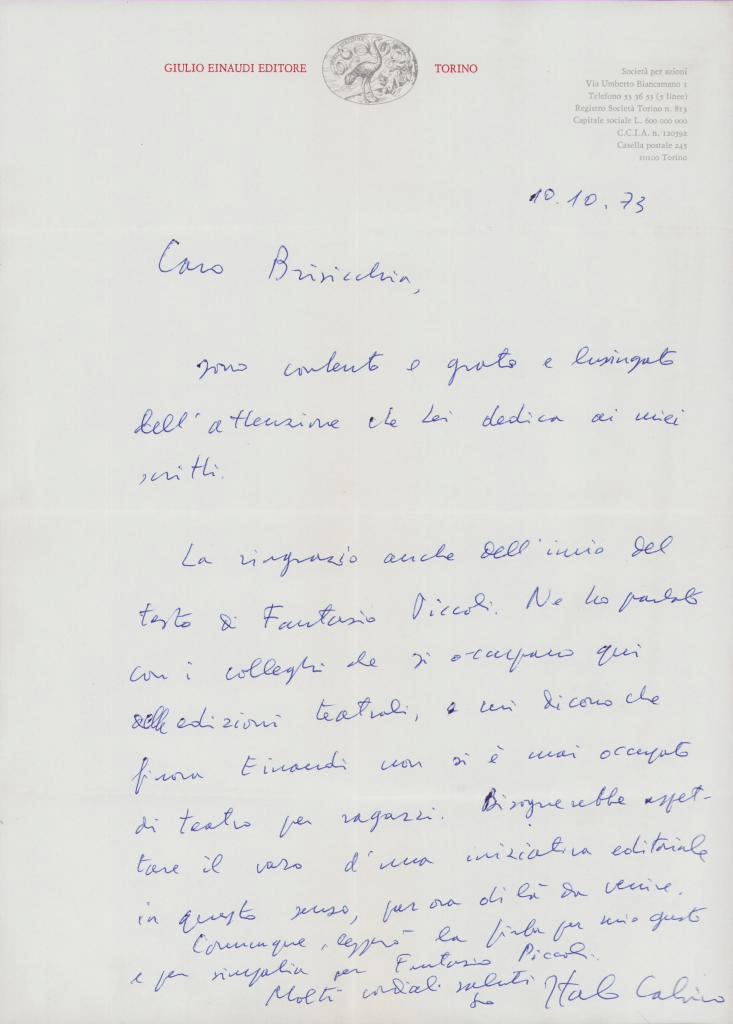 GIULIO EINAUDI EDITORE TORINO
Società per azioni
Via Umberto Biancamano 1
Telefono 53 36 53 (5 linee)
Registro Società Torino n. 813
Capitale sociale L. 600 000 000
C.C.I.A. n. 120392
Casella postale 245
10100 Torino
10.10.73
Caro Brisicchia,
sono contento e grato e lusingato
dell'attenzione che Lei dedica ai miei
scritti.
La ringrazio anche dell'invio del
testo di Fantasio Piccoli. Ne ho parlato
con i colleghi che si occupano qui
delle edizioni teatrali, e mi dicono che
finora Einaudi non si è mai occupato
di teatro per ragazzi. Bisognerebbe aspet-
tare il varo d'una iniziativa editoriale
in questo senso, per ora di là da venire.
Comunque, leggerò la fiaba per mio gusto
e per simpatia per Fantasio Piccoli.
Molti cordiali saluti
Italo Calvino